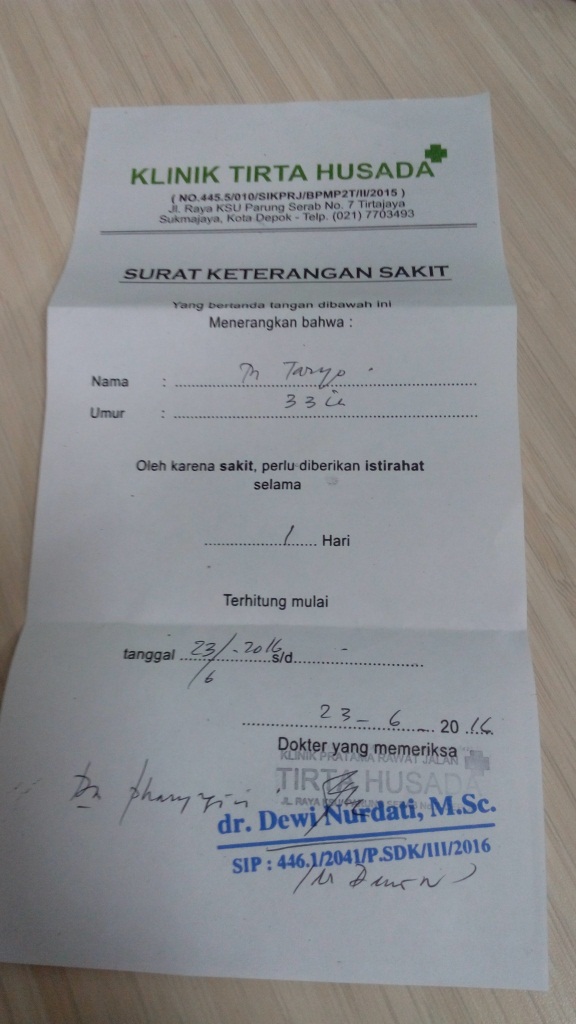 KLINIK TIRTA HUSADA
( NO.445.5/010/SIKPRJ/BPMP2T/II/2015 )
Jl. Raya KSU Parung Serab No. 7 Tirtajaya
Sukmajaya, Kota Depok - Telp. (021) 7703493
SURAT KETERANGAN SAKIT
Yang bertanda tangan dibawah ini
Menerangkan bahwa :
Nama : Tn Taryo
Umur : 33
Oleh karena sakit, perlu diberikan istirahat
selama
1 Hari
Terhitung mulai
tanggal 23/6-2016 s/d -
23 - 6 - 2016
Dokter yang memeriksa
KLINIK PRATAMA RAWAT JALAN
TIRTA HUSADA
JL. RAYA
dr. Dewi Nurdati, M.Sc.
SIP : 446.1/2041/P.SDK/III/2016